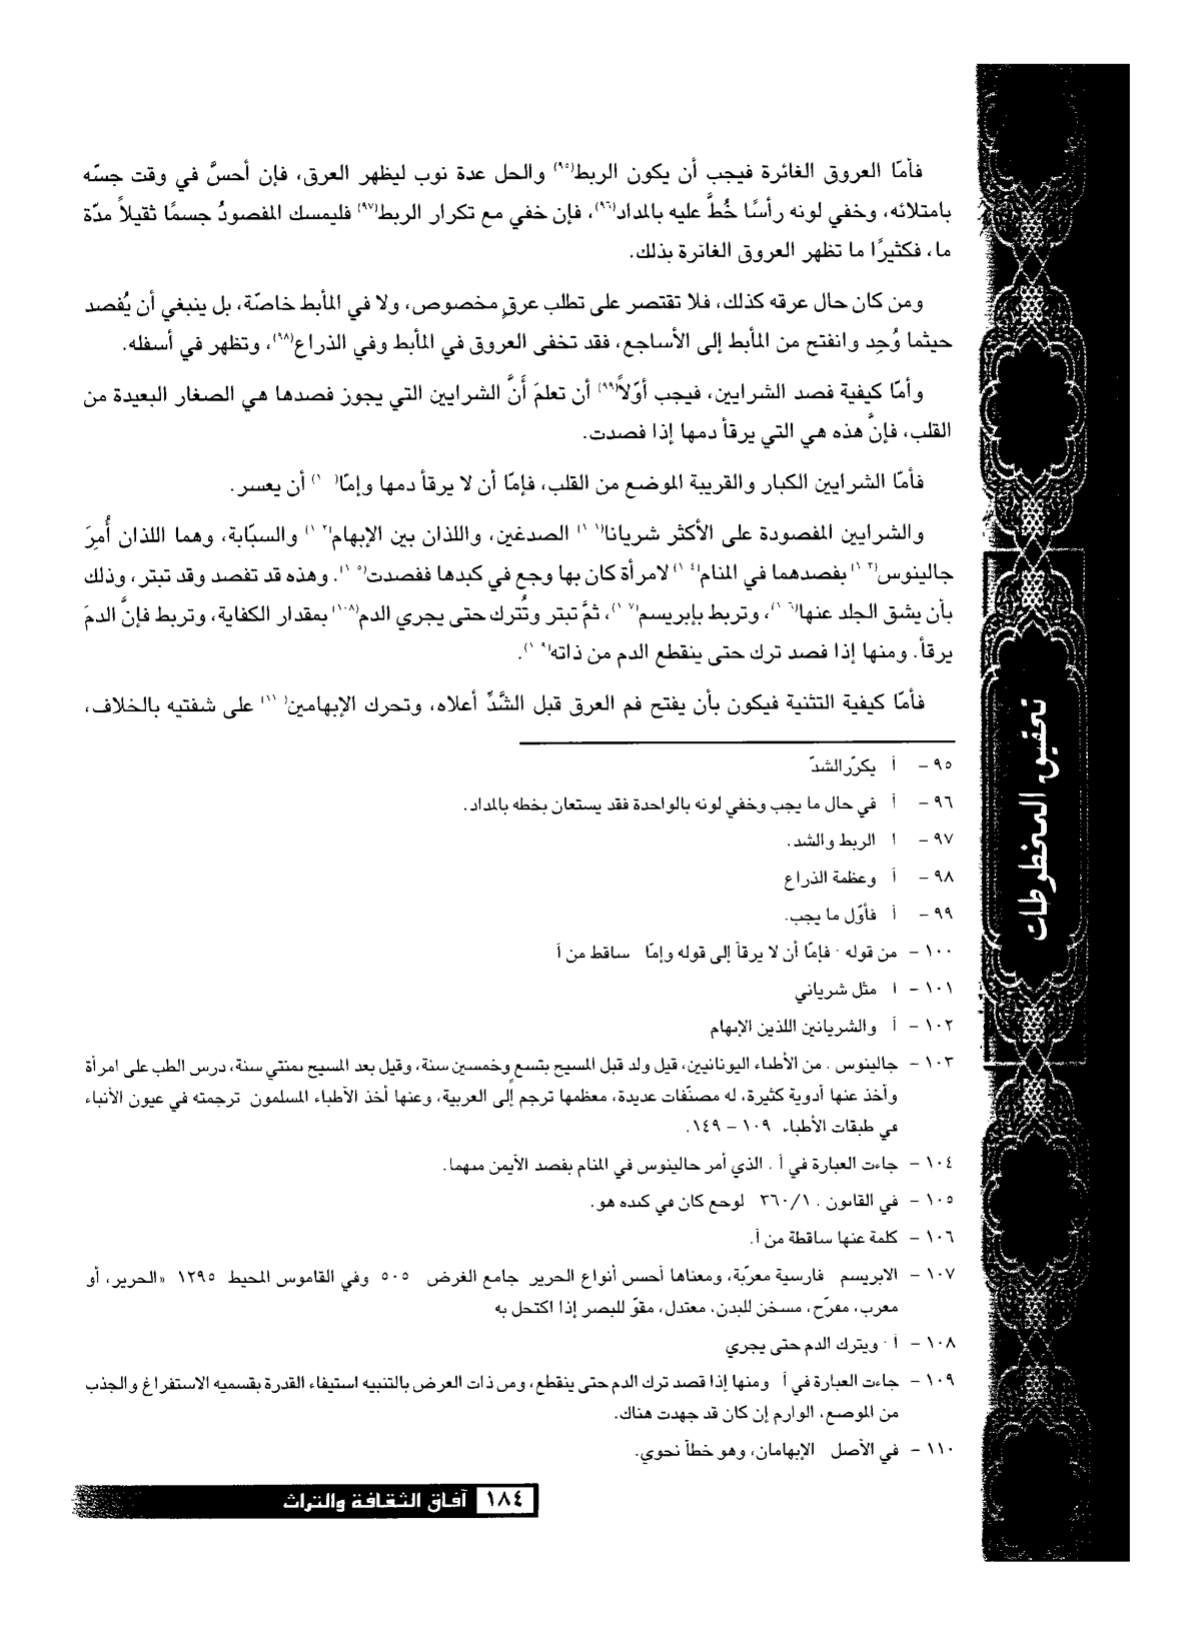 فأمّا العروق الغائرة فيجب أن يكون الربط(٩٥) والحل عدة نوب ليظهر العرق، فإن أحسَّ في وقت جسّه
بامتلائه، وخفي لونه رأسًا خُطَّ عليه بالمداد(٩٦)، فإن خفي مع تكرار الربط(٩٧) فليمسك المفصودُ جسمًا ثقيلاً مدّة
ما، فكثيرًا ما تظهر العروق الغائرة بذلك.
ومن كان حال عرقه كذلك، فلا تقتصر على تطلب عرقٍ مخصوص، ولا في المأبط خاصّة، بل ينبغي أن يُفصد
حيثما وُجِد وانفتح من المأبط إلى الأساجع، فقد تخفى العروق في المأبط وفي الذراع(٩٨)، وتظهر في أسفله.
وأمّا كيفية فصد الشرايين، فيجب أوّلاً(٩٩) أن تعلمَ أَنَّ الشرايين التي يجوز فصدها هي الصغار البعيدة من
القلب، فإنَّ هذه هي التي يرقأ دمها إذا فصدت.
فأمّا الشرايين الكبار والقريبة الموضع من القلب، فإمّا أن لا يرقأ دمها وإمّا(١٠٠) أن يعسر.
والشرايين المفصودة على الأكثر شريانا(١٠١) الصدغين، واللذان بين الإبهام(١٠٢) والسبّابة، وهما اللذان أُمِرَ
جالينوس(١٠٣) بفصدهما في المنام(١٠٤) لامرأة كان بها وجع في كبدها ففصدت(١٠٥). وهذه قد تفصد وقد تبتر، وذلك
بأن يشق الجلد عنها(١٠٦)، وتربط بإبريسم(١٠٧)، ثمَّ تبتر وتُترك حتى يجري الدم(١٠٨) بمقدار الكفاية، وتربط فإنَّ الدمَ
يرقأ. ومنها إذا فصد ترك حتى ينقطع الدم من ذاته(١٠٩).
فأمّا كيفية التثنية فيكون بأن يفتح فم العرق قبل الشَّدِّ أعلاه، وتحرك الإبهامين(١١٠) على شفتيه بالخلاف،
٩٥ - أ يكرّر الشدّ
٩٦ - أ في حال ما يجب وخفي لونه بالواحدة فقد يستعان بخطه بالمداد.
٩٧ - أ الربط والشد.
٩٨ - أ وعظمة الذراع
٩٩ - أ فأوّل ما يجب.
١٠٠ - من قوله فإمّا أن لا يرقأ إلى قوله وإمّا ساقط من أ
١٠١ - أ مثل شرياني
١٠٢ - أ والشريانين اللذين الإبهام
١٠٣ - جالينوس . من الأطباء اليونانيين، قيل ولد قبل المسيح بتسعٍ وخمسين سنة، وقيل بعد المسيح بمئتي سنة، درس الطب على امرأة
وأخذ عنها أدوية كثيرة، له مصنّفات عديدة، معظمها ترجم إلى العربية، وعنها أخذ الأطباء المسلمون ترجمته في عيون الأنباء
في طبقات الأطباء ١٠٩ - ١٤٩.
١٠٤ - جاءت العبارة في أ . الذي أمر جالينوس في المنام بفصد الأيمن منهما.
١٠٥ - في القانون . ٣٦٠/١ لوجع كان في كبده هو.
١٠٦ - كلمة عنها ساقطة من أ.
١٠٧ - الابريسم فارسية معرّبة، ومعناها أحسن أنواع الحرير جامع الغرض ٥٠٥ وفي القاموس المحيط ١٣٩٥ «الحرير، أو
معرب، مفرّح، مسخن للبدن، معتدل، مقوّ للبصر إذا اكتحل به
١٠٨ - أ ويترك الدم حتى يجري
١٠٩ - جاءت العبارة في أ ومنها إذا قصد ترك الدم حتى ينقطع، ومن ذات العرض بالتنبيه استيفاء القدرة بقسميه الاستفراغ والجذب
من الموضع، الوارم إن كان قد جهدت هناك.
١١٠ - في الأصل الإبهامان، وهو خطأ نحوي.
١٨٤ آفاق الثقافة والتراث
تحقيق المخطوطات